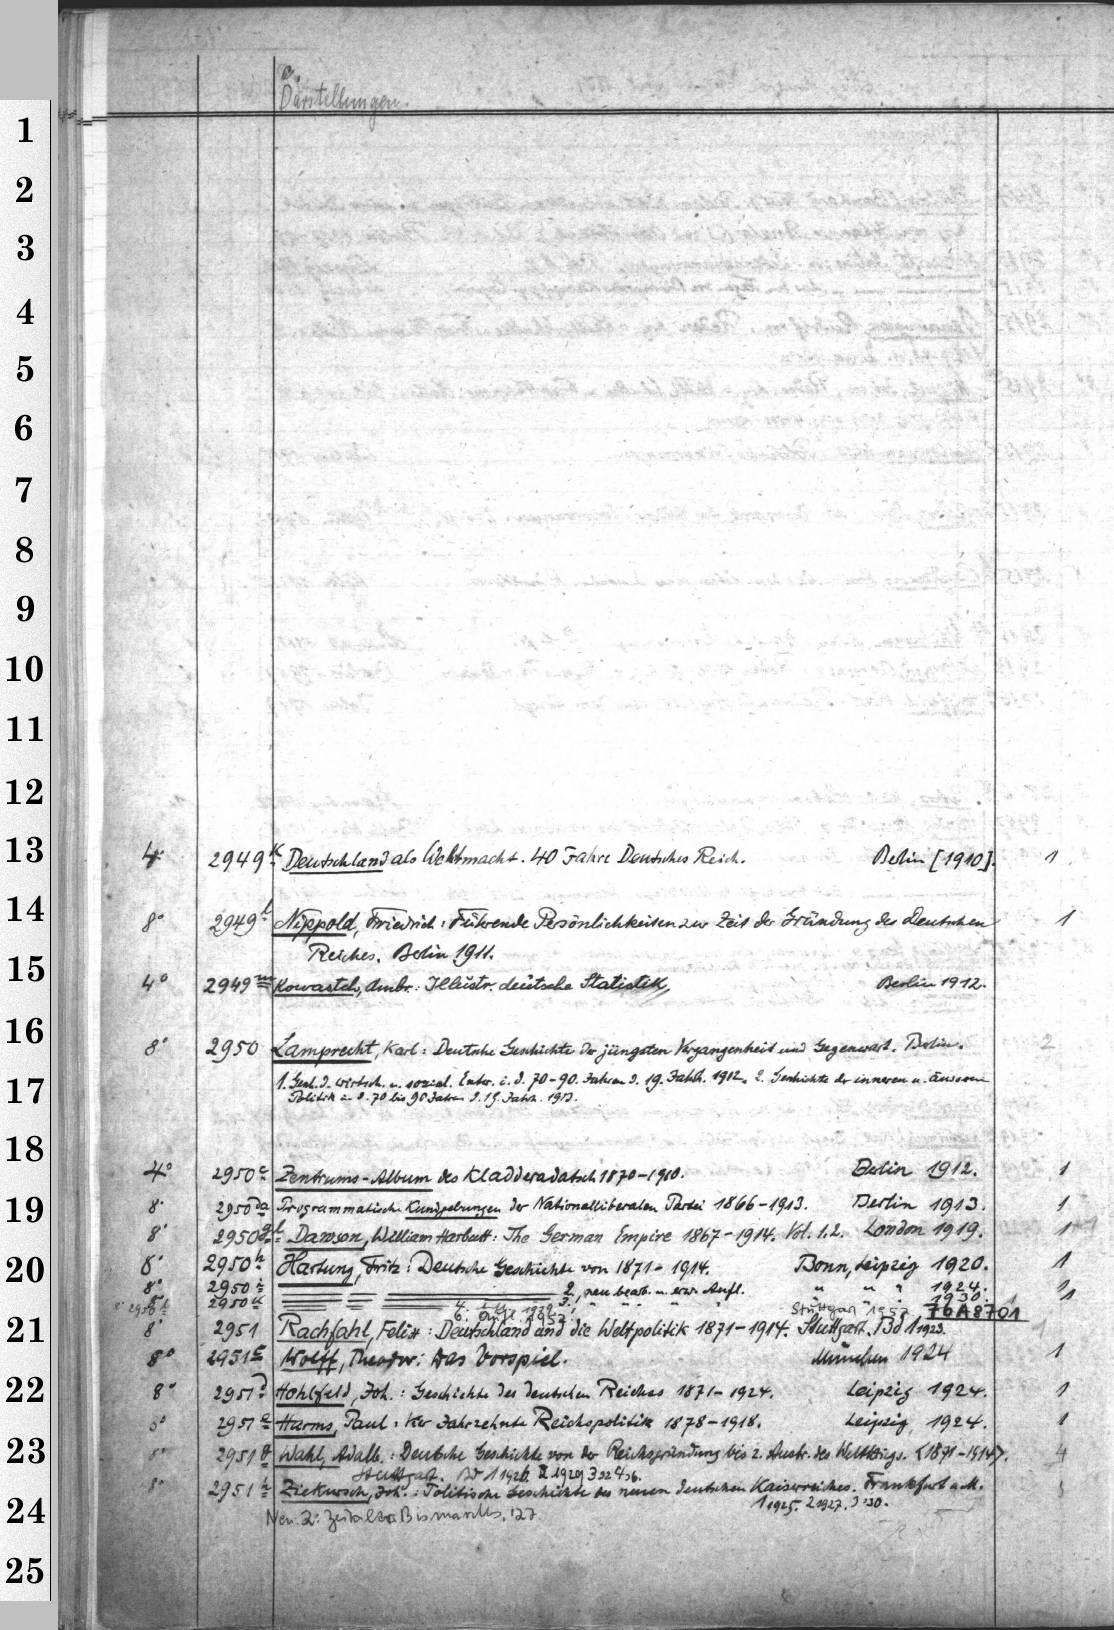 c.
Darstellungen.
1
2
3
4
5
6
7
8
9
10
11
12
13
4° 2949 k Deutschland als Weltmacht. 40 Jahre Deutsches Reich. Berlin [1910]. 1
14
8° 2949 l Nippold, Friedrich: Führende Persönlichkeiten zur Zeit der Gründung des Deutschen 1
Reiches. Berlin 1911.
15
4° 2949 m Kowastch, Ambr.: Illustr. deutsche Statistik, Berlin 1912.
16
8° 2950 Lamprecht, Karl: Deutsche Geschichte der jüngsten Vergangenheit und Gegenwart. Berlin. 2
17
1. Gesch. d. wirtsch. u. sozial. Entw. i. d. 70-90. Jahren d. 19. Jahrh. 1912. 2. Geschichte der inneren u. äusseren
Politik in d. 70 bis 90 Jahren d. 19. Jahrh. 1913.
18
4° 2950 c Zentrums-Album des Kladderadatsch 1870-1910. Berlin 1912. 1
19
8° 2950 da Programmatische Kundgebungen der Nationalliberalen Partei 1866-1913. Berlin 1913. 1
8° 2950 Dawson, William Harbutt: The German Empire 1867-1914. Vol. 1.2. London 1919.
20
8° 2950 h Hartung, Fritz: Deutsche Geschichte von 1871-1914. Bonn, Leipzig 1920. 1
8° 2950 i 2., neu bearb. u. erw. Aufl. " " " 1924. 1
8° 2950 k 3., " " " " " " " 1930. 1
4. 1939.
6. Aufl. 1952. Stuttgart 1952. 76A8701
21
8° 2951 Rachfahl, Felix: Deutschland und die Weltpolitik 1871-1914. Stuttgart. Bd 1 1923.
8° 2951 c Wolff, Theodor: Das Vorspiel. München 1924 1
22
8° 2951 d Hohlfeld, Joh.: Geschichte des deutschen Reiches 1871-1924. Leipzig 1924. 1
8° 2951 e Harms, Paul: Vier Jahrzehnte Reichspolitik 1878-1918. Leipzig, 1924. 1
23
8° 2951 g Wahl, Adalb.: Deutsche Geschichte von der Reichsgründung bis z. Ausbr. des Weltkriegs. <1871-1914>. 4
Stuttgart. Bd 1 1926 II 1929 3 32 4 36.
8° 2951 h Ziekursch, Joh.: Politische Geschichte des neuen deutschen Kaiserreiches. Frankfurt a.M.
1 1925. 2 1927. 3 '30.
24
Neu. 2: Zeitalter Bismarcks. '27
25